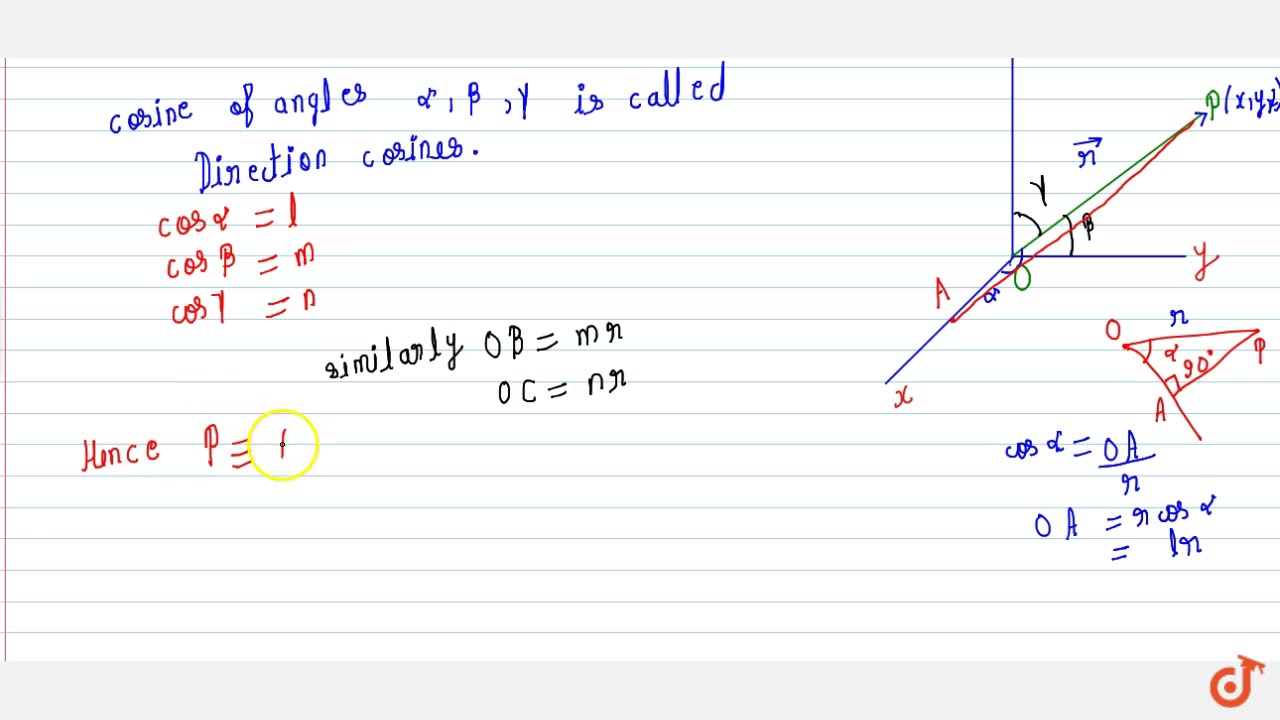 cosine of angles α, β, γ is called
Direction cosines.
cos α = l
cos β = m
cos γ = n
similarly OB = mr
OC = nr
Hence P ≡ (
P(x,y,z)
r⃗
γ
β
y
A
α
O
x
r
O
α
90°
P
A
cos α = OA
r
OA = r cos α
= lr